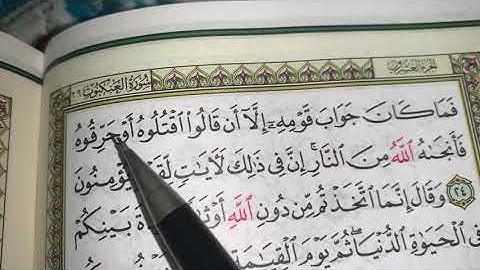 سورة العنكبوت ٢٩ الجزء العشرون
فَمَا كَانَ جَوَابَ قَوْمِهِۦٓ إِلَّآ أَن قَالُوا۟ ٱقْتُلُوهُ أَوْ حَرِّقُوهُ
فَأَنجَىٰهُ ٱللَّهُ مِنَ ٱلنَّارِ ۚ إِنَّ فِى ذَٰلِكَ لَءَايَـٰتٍ يُؤْمِنُونَ
٢٤ وَقَالَ إِنَّمَا ٱتَّخَذْتُم مِّن دُونِ ٱللَّهِ بَيْنِكُمْ
فِى ٱلْحَيَوٰةِ ٱلدُّنْيَا ۖ ثُمَّ يَوْمَ ٱلْقِيَـٰمَةِ